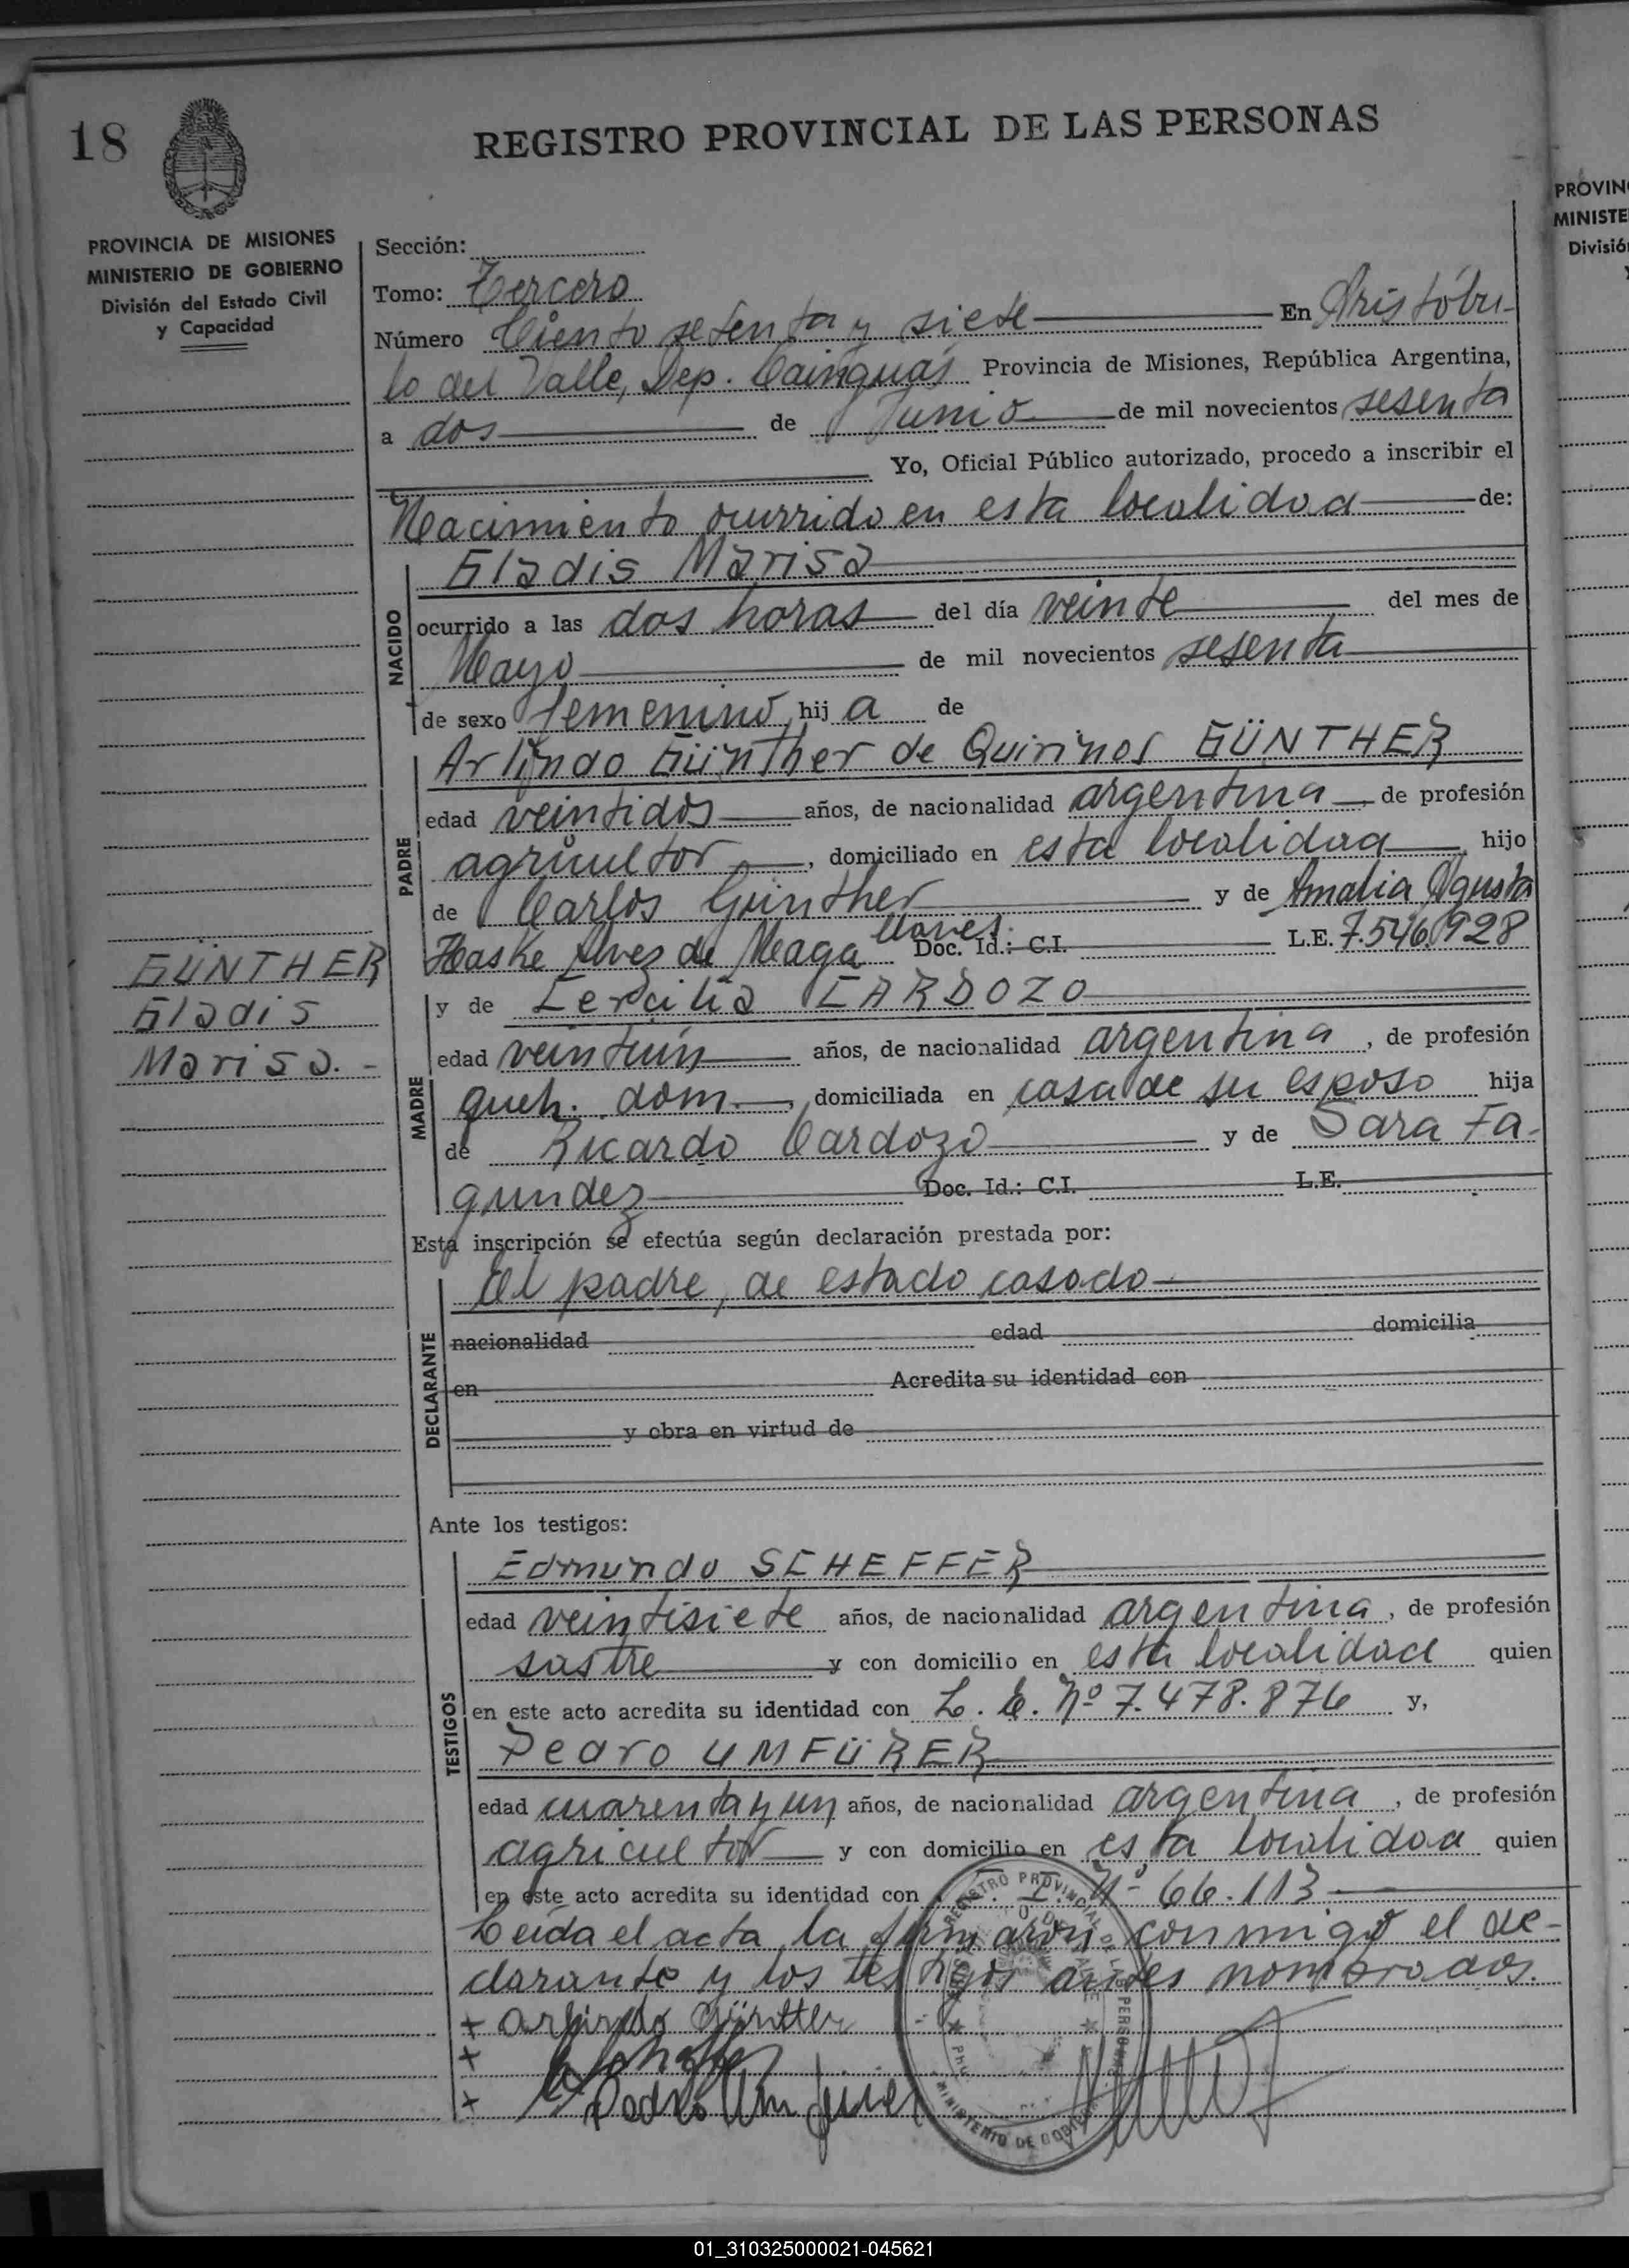 18
REGISTRO PROVINCIAL DE LAS PERSONAS
PROVINCIA DE MISIONES
MINISTERIO DE GOBIERNO
División del Estado Civil
y Capacidad
Sección:
Tomo: Tercero
Número Ciento setenta y siete En Aristóbu-
lo del Valle, Dep. Cainguás Provincia de Misiones, República Argentina,
a dos de Junio de mil novecientos sesenta
Yo, Oficial Público autorizado, procedo a inscribir el
Nacimiento ocurrido en esta localidad de:
NACIDO
Gladis Marisa
ocurrido a las dos horas del día veinte del mes de
Mayo de mil novecientos sesenta
de sexo femenino, hij a de
PADRE
Arlindo Günther de Quirinos GÜNTHER
edad veintidos años, de nacionalidad argentina de profesión
agricultor, domiciliado en esta localidad, hijo
de Carlos Günther y de Amalia Agusta
Haske Alvez de Meaga Doc. Id.: C.I. L.E. 7.546.928
GÜNTHER
Gladis
Marisa.-
MADRE
y de Lercilia CARDOZO
edad veintiún años, de nacionalidad argentina, de profesión
queh. dom., domiciliada en casa de su esposo hija
de Ricardo Cardozo y de Sara Fa-
gundez Doc. Id.: C.I. L.E.
Esta inscripción se efectúa según declaración prestada por:
DECLARANTE
El padre, de estado casado
nacionalidad edad domicilia
en Acredita su identidad con
y obra en virtud de
Ante los testigos:
TESTIGOS
Edmundo SCHEFFER
edad veintisiete años, de nacionalidad argentina, de profesión
sastre y con domicilio en esta localidad quien
en este acto acredita su identidad con L.E. Nº 7.478.876 y,
Pedro UMFÜRER
edad cuarenta y un años, de nacionalidad argentina, de profesión
agricultor y con domicilio en esta localidad quien
en este acto acredita su identidad con C. I. Nº 66.113
Leída el acta la firmaron conmigo el de-
clarante y los testigos antes nombrados.
+ Arlindo Günther
+
+ Pedro Umfurer
PROVIN
MINISTE
Divisió
01_310325000021-045621